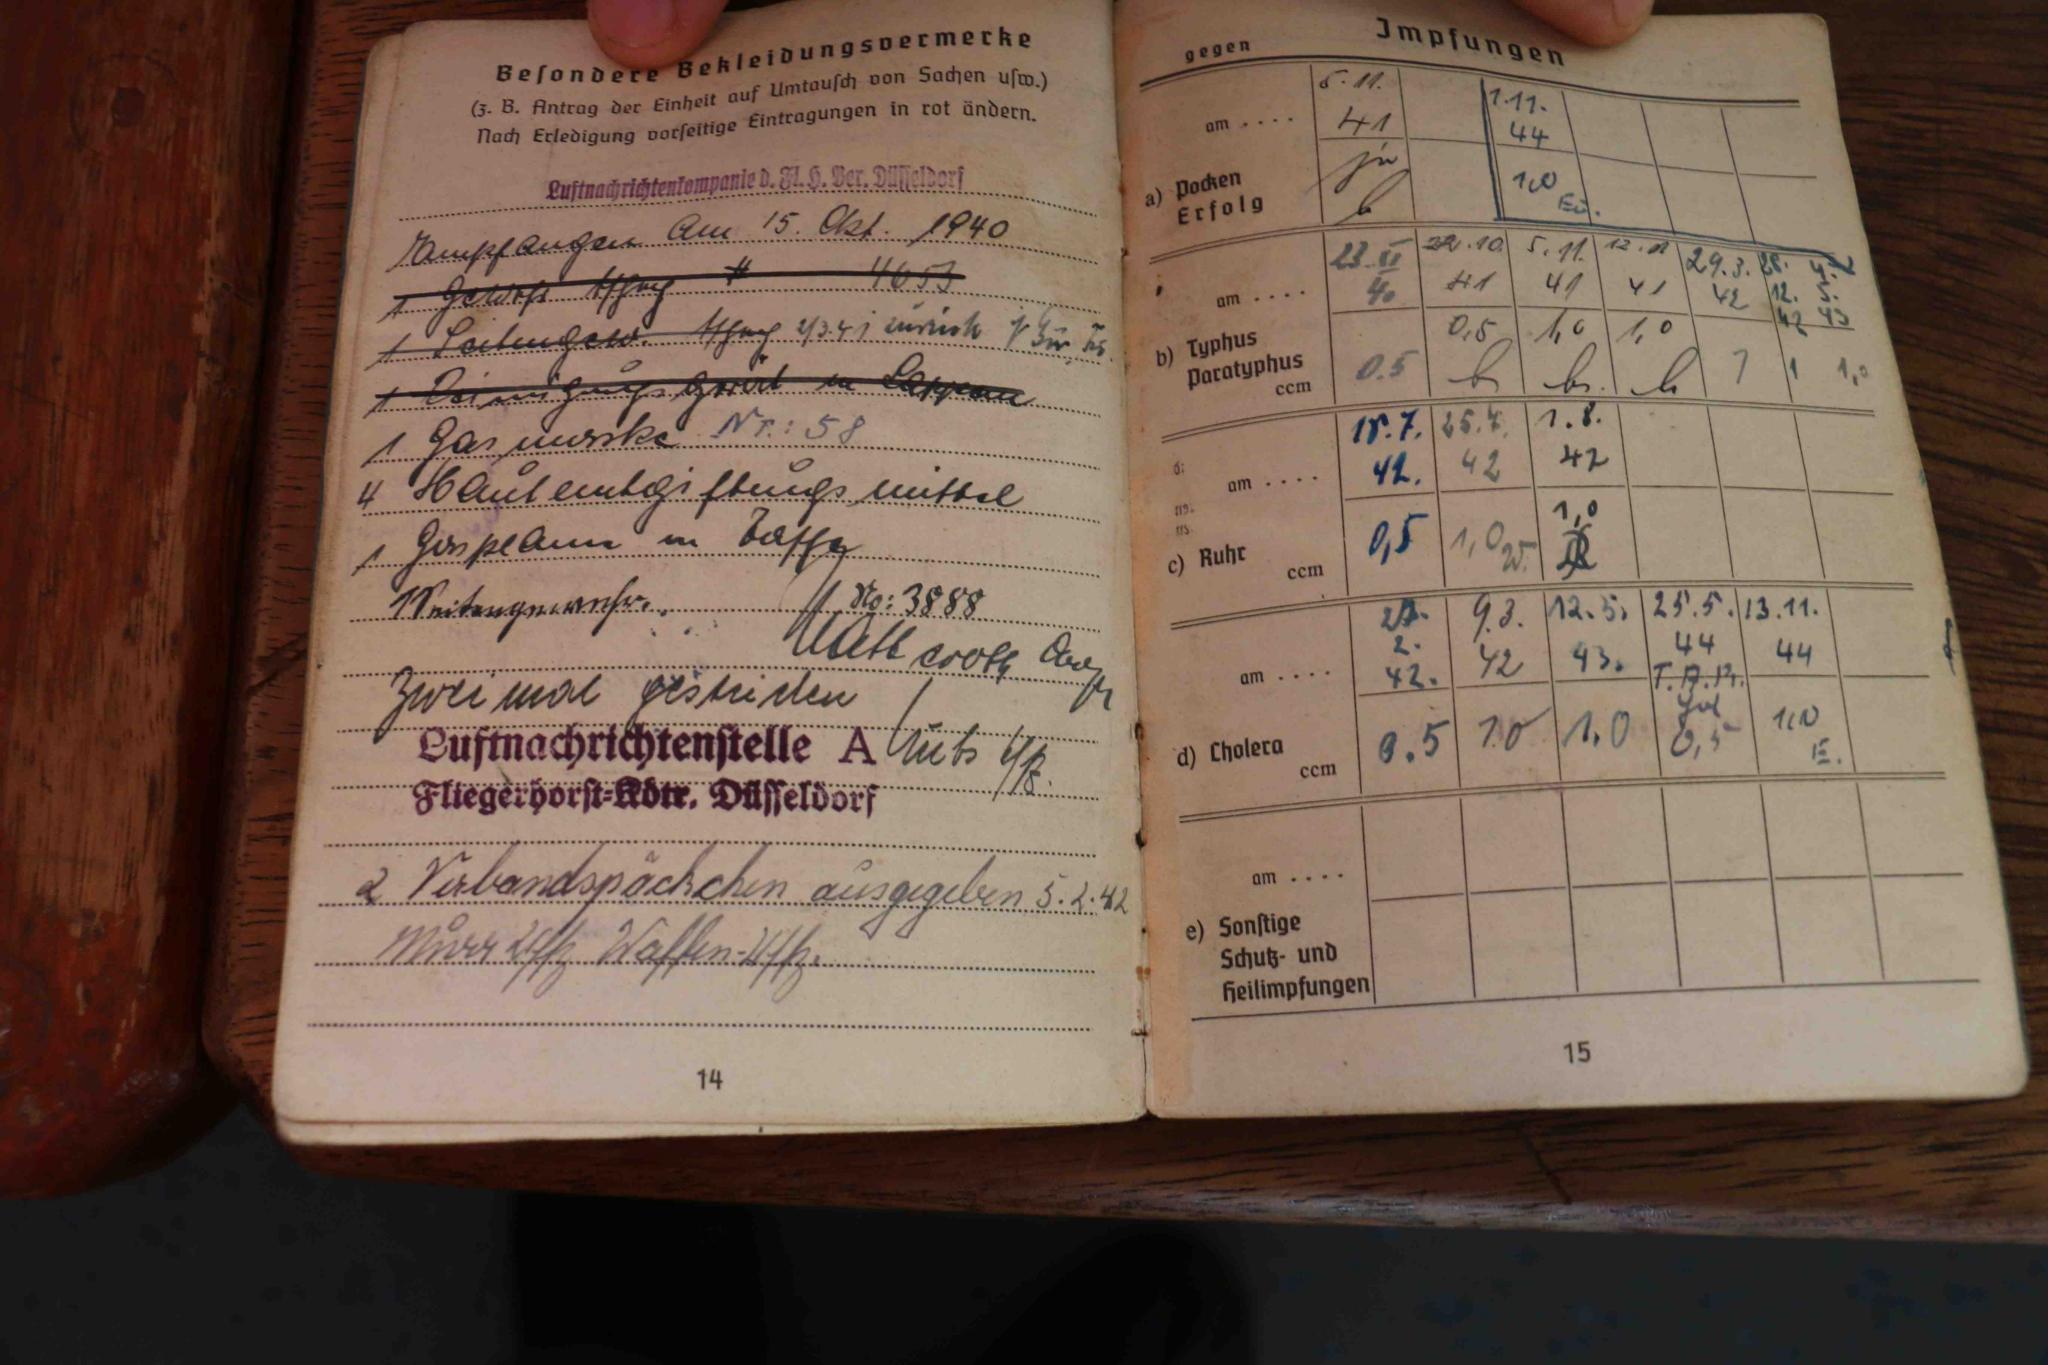 Besondere Bekleidungsvermerke
(z. B. Antrag der Einheit auf Umtausch von Sachen usw.)
Nach Erledigung vorseitige Eintragungen in rot ändern.
Luftnachrichtenkompanie d. Fl. H. Ber. Düsseldorf
Empfangen am 15. Okt. 1940
1 4653
1 2/3.41 zurück
1 Reinigungsgerät in
1 Gasmaske Nr.: 58
4 Hautentgiftungsmittel
1 Gasplane in
1 Seitengewehr. No: 3888
Zwei mal gestrichen
Luftnachrichtenstelle A
Fliegerhorst-Kdtr. Düsseldorf
2 Verbandspäckchen ausgegeben 5.2.42
Uffz Waffen-Uffz.
14
gegen Impfungen
am .... 5.11. 41 1.11. 44
a) Pocken
Erfolg 1,0
am .... 23.XI 40 22.10. 41 5.11. 41 12.11 41 29.3. 42 28. 12. 42
b) Typhus
Paratyphus
ccm 0.5 0,5 1,0 1,0 1 1 1,0
am .... 18.7. 42. 25.7. 42 1.8. 42
c) Ruhr ccm 0,5 1,0 1,0
am .... 2. 42. 9.3. 42 12.5. 43. 25.5. 44 13.11. 44
d) Cholera
ccm 0.5 1.0 1,0 0,5 1,0
am ....
e) Sonstige
Schutz- und
Heilimpfungen
15